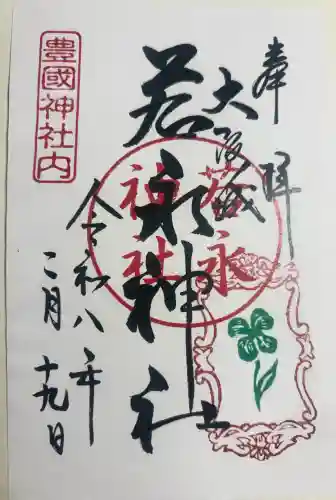 奉拝
大阪城
若永神社
若永
神社
豊國神社内
令和八年
二月十九日